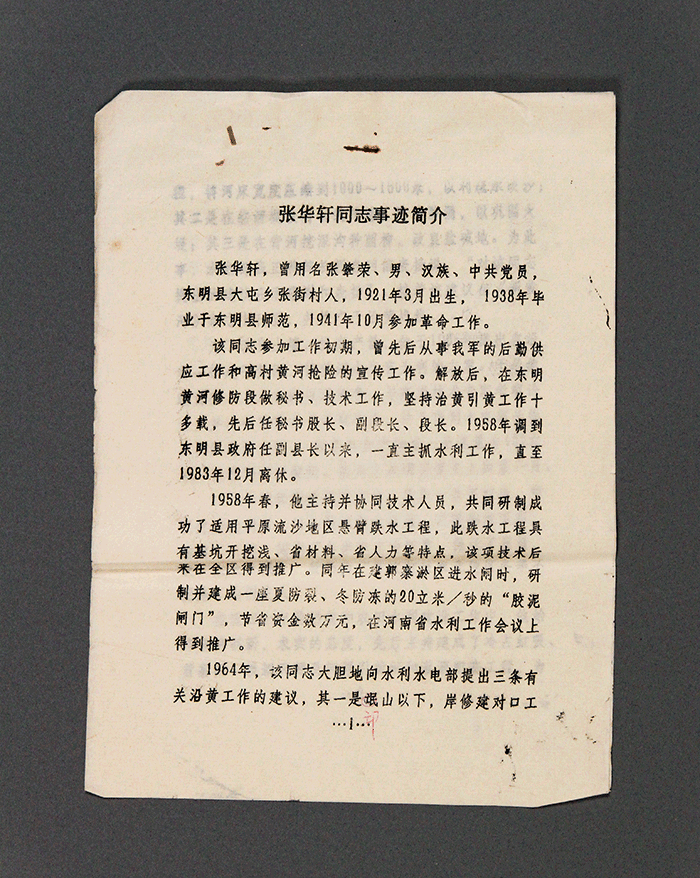 张华轩同志事迹简介
张华轩，曾用名张肇荣、男、汉族、中共党员，
东明县大屯乡张街村人，1921年3月出生，1938年毕
业于东明县师范，1941年10月参加革命工作。
该同志参加工作初期，曾先后从事我军的后勤供
应工作和高村黄河抢险的宣传工作。解放后，在东明
黄河修防段做秘书、技术工作，坚持治黄引黄工作十
多载，先后任秘书股长、副段长、段长。1958年调到
东明县政府任副县长以来，一直主抓水利工作，直至
1983年12月离休。
1958年春，他主持并协同技术人员，共同研制成
功了适用平原流沙地区悬臂跌水工程，此跌水工程具
有基坑开挖浅、省材料、省人力等特点，该项技术后
来在全区得到推广。同年在建郭寨淤区进水闸时，研
制并建成一座夏防裂、冬防冻的20立米／秒的“胶泥
闸门”，节省资金数万元，在河南省水利工作会议上
得到推广。
1964年，该同志大胆地向水利水电部提出三条有
关沿黄工作的建议，其一是岷山以下，岸修建对口工
…1…